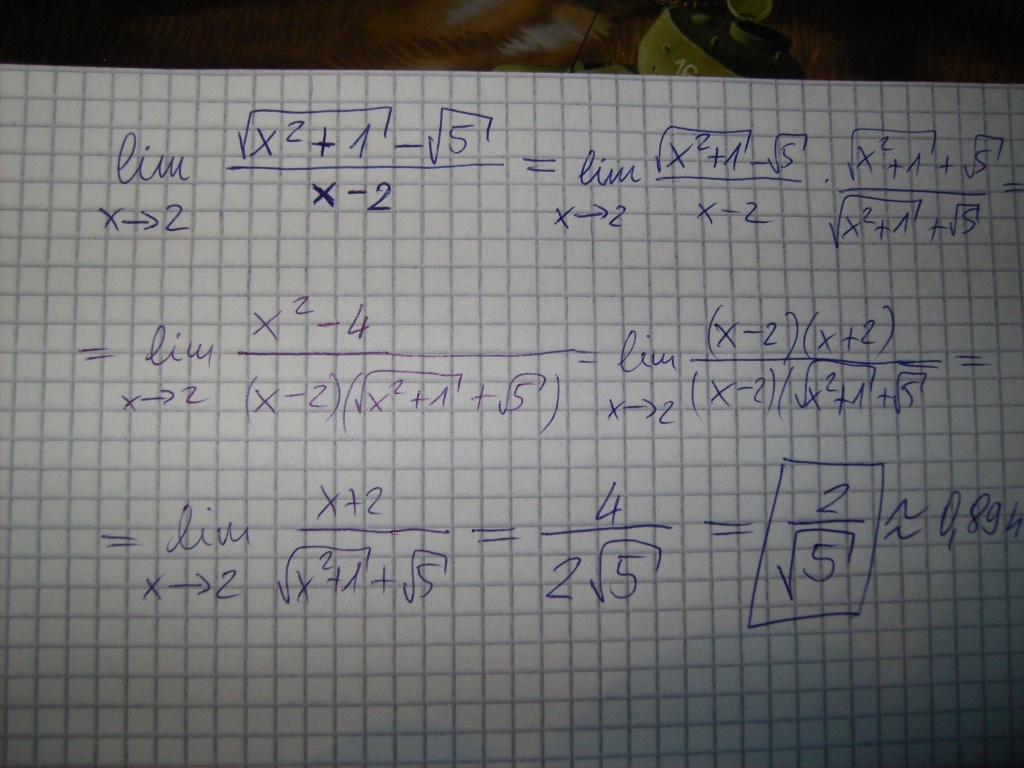 16
lim x→2 (√(x²+1) − √5)/(x−2) = lim x→2 (√(x²+1) − √5)/(x−2) · (√(x²+1) + √5)/(√(x²+1) + √5) =
= lim x→2 (x²−4)/((x−2)(√(x²+1) + √5)) = lim x→2 ((x−2)(x+2))/((x−2)(√(x²+1) + √5 =
= lim x→2 (x+2)/(√(x²+1) + √5) = 4/(2√5) = 2/√5 ≈ 0,894